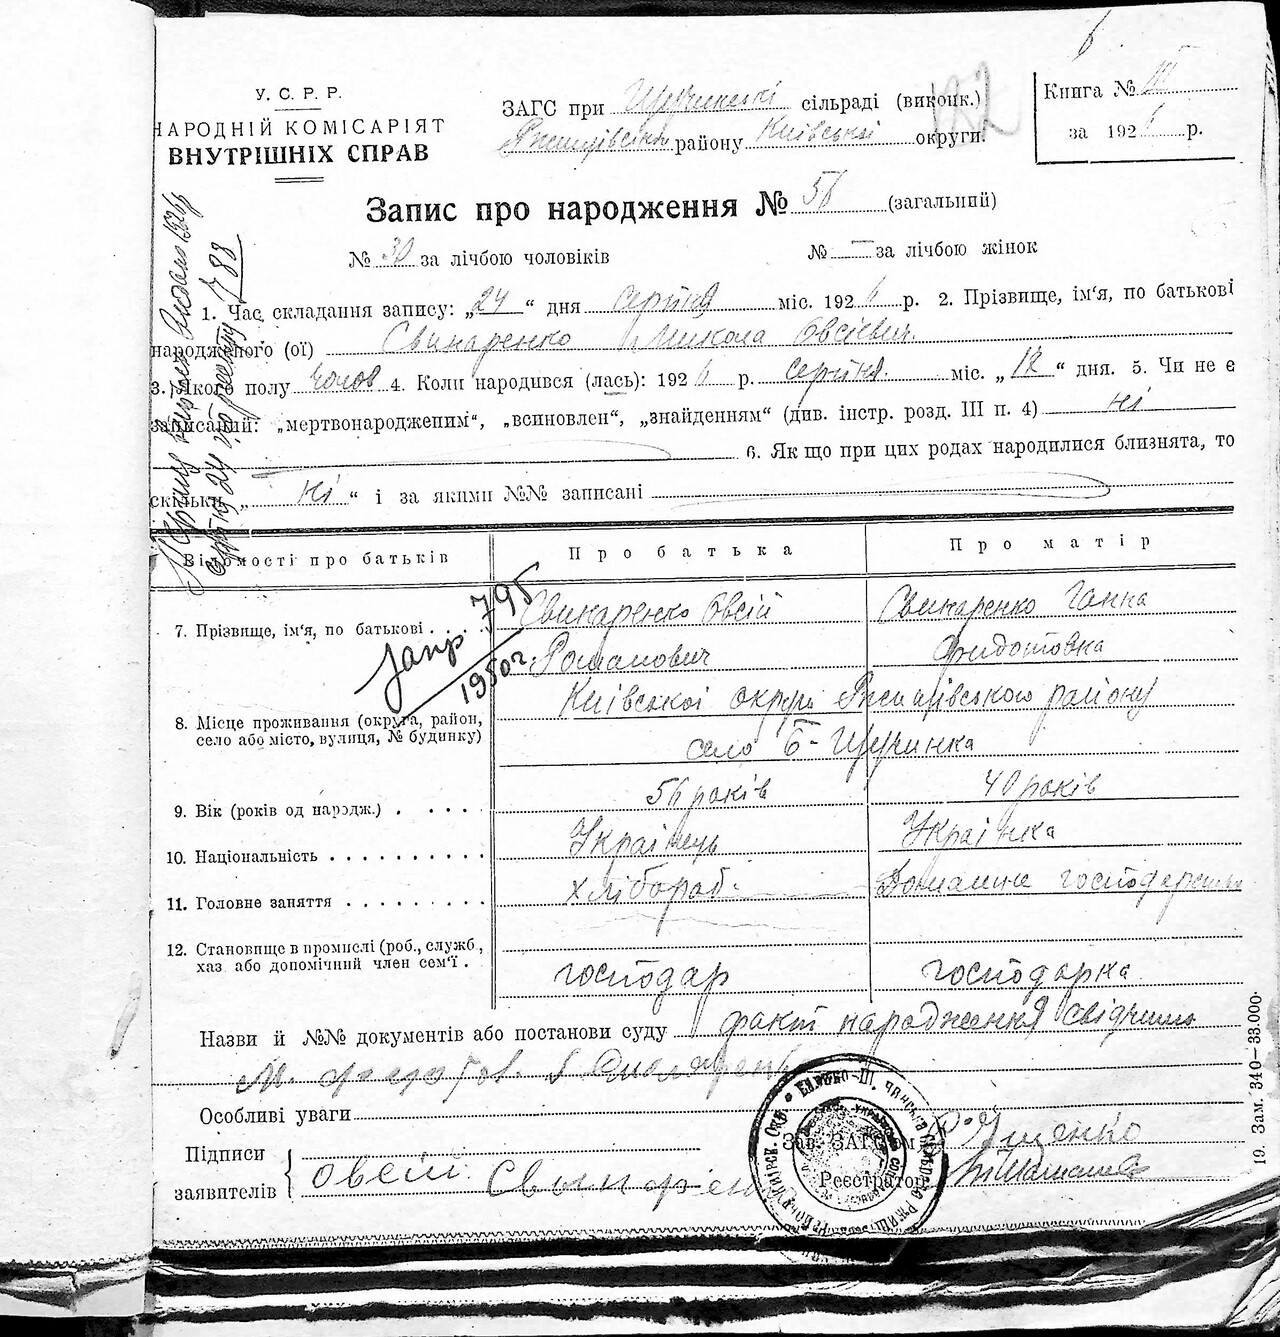 У. С. Р. Р.
НАРОДНІЙ КОМІСАРІЯТ
ВНУТРІШНІХ СПРАВ
ЗАГС при Щучинській сільраді (виконк.)
Ржищівського району Київської округи.
122
Книга № III
за 1926 р.
Запис про народження № 56 (загальний)
№ 30 за лічбою чоловіків № — за лічбою жінок
1. Час складання запису: „24“ дня серпня міс. 1926 р. 2. Прізвище, ім'я, по батькові
народженого (ої) Свинаренко Микола Овсієвич.
3. Якого полу чолов 4. Коли народився (лась): 1926 р. серпня міс. „18“ дня. 5. Чи не є
записаний: „мертвонародженим“, „всиновлен“, „знайденням“ (див. інстр. розд. III п. 4) ні
6. Як що при цих родах народилися близнята, то
скільки „ні“ і за якими №№ записані
788
Відомості про батьків Про батька Про матір
7. Прізвище, ім'я, по батькові . . . Свинаренко Овсій Свинаренко Ганна
Романович Федотовна
запр. 795
1950 г.
8. Місце проживання (округа, район, село або місто, вулиця, № будинку) Київської округи Ржищівського району
село Б-Щучинка
9. Вік (років од народж.) . . . . 56 років 40 років
10. Національність . . . . . . . . . Українець Українка
11. Головне заняття . . . . . . . . хлібороб. Домашнє господарство
12. Становище в промислі (роб., служб., хаз. або допомічний член сем'ї . господар господарка
Назви й №№ документів або постанови суду факт народження свідчили
Особливі уваги
Підписи
заявителів Овсій Свинаренко
Зав. ЗАГС'ом
Реєстратор
19. Зам. 340—33.000.